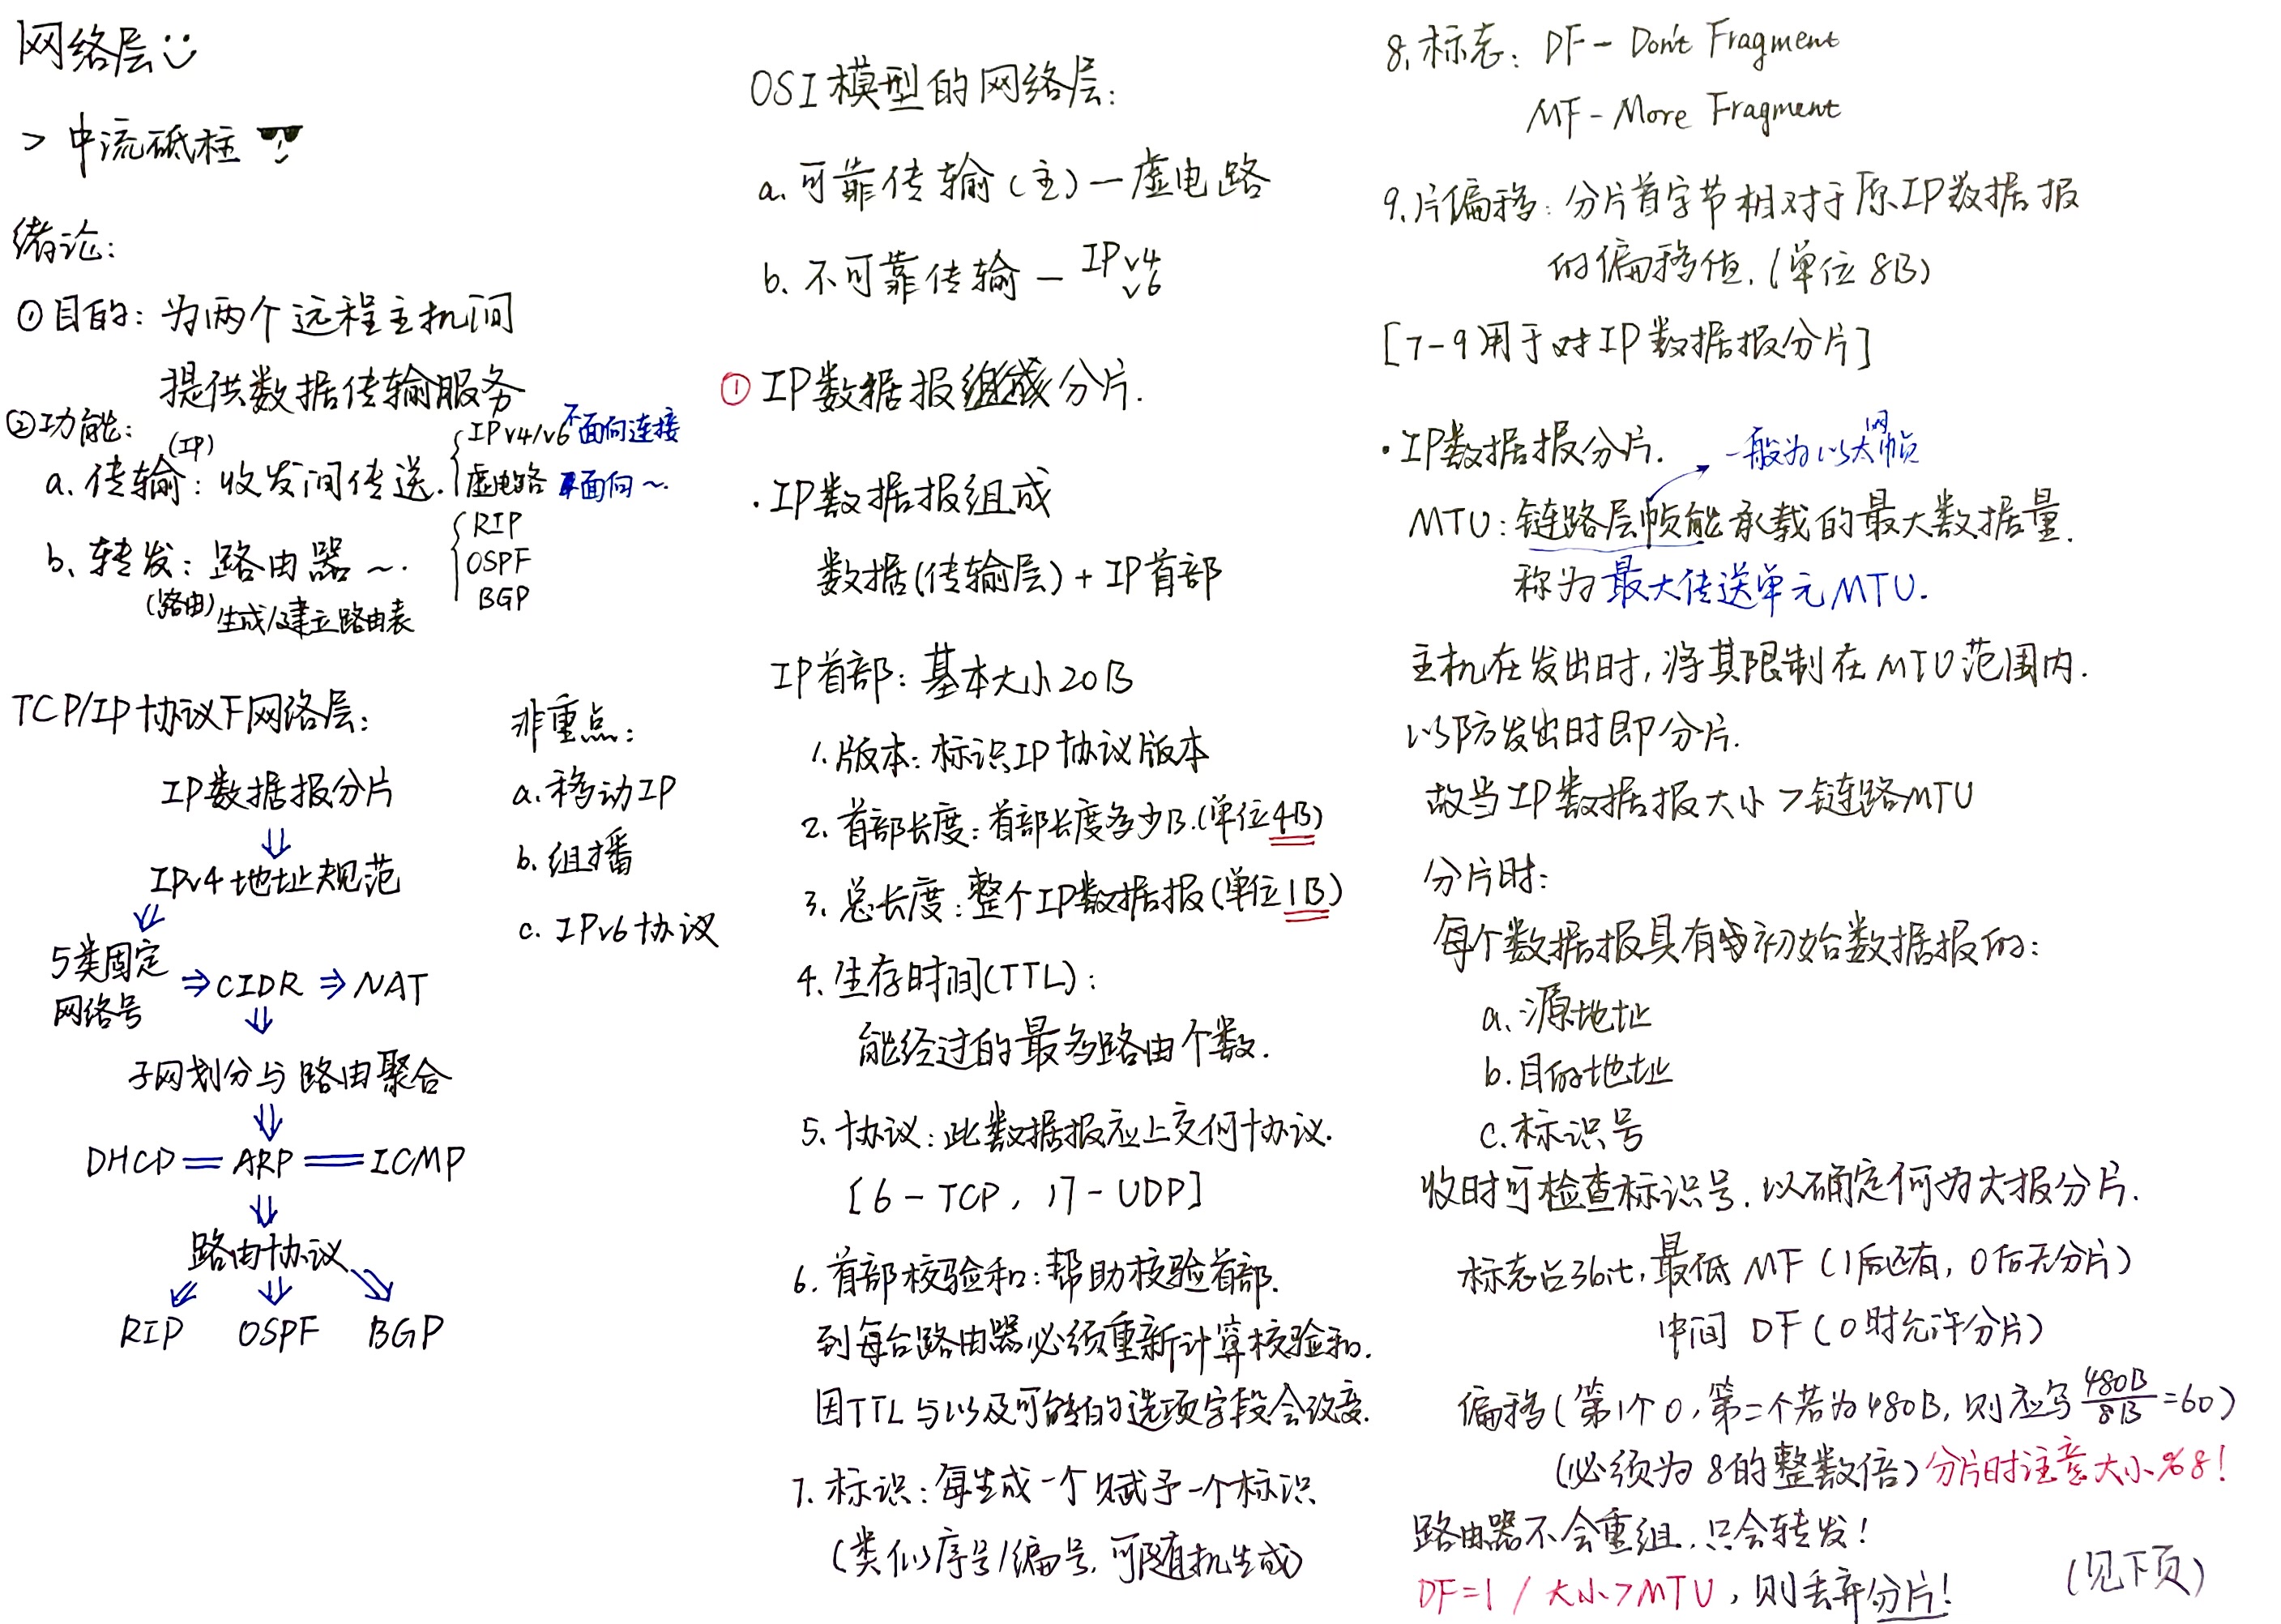 网络层
> 中流砥柱
绪论:
①目的: 为两个远程主机间
提供数据传输服务
②功能:
(IP)
a. 传输: 收发间传送.
IPv4/v6 不面向连接
虚电路 面向~.
b. 转发: 路由器~.
(路由) 生成/建立路由表
RIP
OSPF
BGP
TCP/IP协议下网络层:
IP数据报分片
⇓
IPv4地址规范
⇙
5类固定
网络号
⇒ CIDR ⇒ NAT
⇓
子网划分与路由聚合
⇓
DHCP = ARP = ICMP
⇓
路由协议
⇙ ⇓ ⇘
RIP OSPF BGP
非重点:
a. 移动IP
b. 组播
c. IPv6协议
OSI模型的网络层:
a. 可靠传输(主)—虚电路
b. 不可靠传输 — IPv4
v6
① IP数据报组成分片.
·IP数据报组成
数据(传输层) + IP首部
IP首部: 基本大小20B
1. 版本: 标识IP协议版本
2. 首部长度: 首部长度多少B.(单位4B)
3. 总长度: 整个IP数据报(单位1B)
4. 生存时间(TTL):
能经过的最多路由个数.
5. 协议: 此数据报应上交何协议.
[6 - TCP, 17 - UDP]
6. 首部校验和: 帮助校验首部.
到每台路由器必须重新计算校验和.
因TTL与以及可能的选项字段会改变.
7. 标识: 每生成一个赋予一个标识
(类似序号/编号, 可随机生成)
8. 标志: DF - Don't Fragment
MF - More Fragment
9. 片偏移: 分片首字节相对于原IP数据报
的偏移值. (单位8B)
[7-9用于对IP数据报分片]
·IP数据报分片.
一般为以太网帧
MTU: 链路层帧能承载的最大数据量.
称为最大传送单元MTU.
主机在发出时, 将其限制在MTU范围内.
以防发出时即分片.
故当IP数据报大小>链路MTU
分片时:
每个数据报具有初始数据报的:
a. 源地址
b. 目的地址
c. 标识号
收时可检查标识号, 以确定何为大报分片.
标志占3bit, 最低MF (1后还有, 0后无分片)
中间 DF (0时允许分片)
偏移(第1个0, 第二个若为480B, 则应写 480B/8B = 60)
(必须为8的整数倍) 分片时注意大小%8!
路由器不会重组, 只会转发!
DF=1 / 大小>MTU, 则丢弃分片!
(见下页)